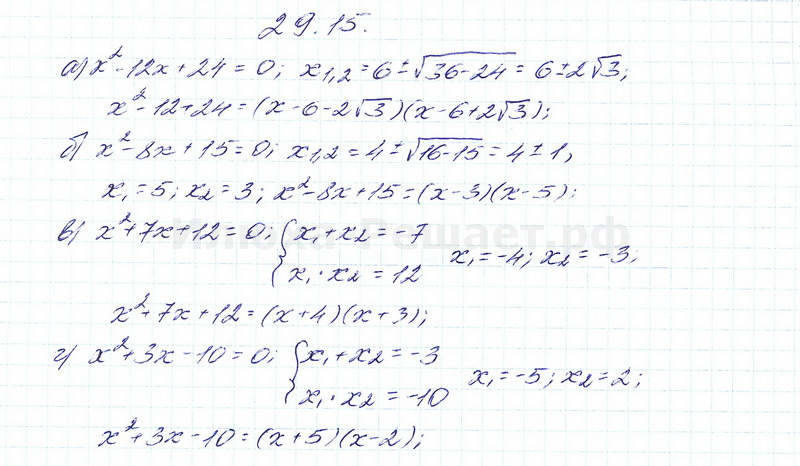 29.15.
а) x²-12x+24=0; x₁,₂=6±√36-24=6±2√3;
x²-12+24=(x-6-2√3)(x-6+2√3);
б) x²-8x+15=0; x₁,₂=4±√16-15=4±1,
x₁=5; x₂=3; x²-8x+15=(x-3)(x-5);
в) x²+7x+12=0; {x₁+x₂=-7
x₁·x₂=12
x₁=-4; x₂=-3;
x²+7x+12=(x+4)(x+3);
г) x²+3x-10=0; {x₁+x₂=-3
x₁·x₂=-10
x₁=-5; x₂=2;
x²+3x-10=(x+5)(x-2);